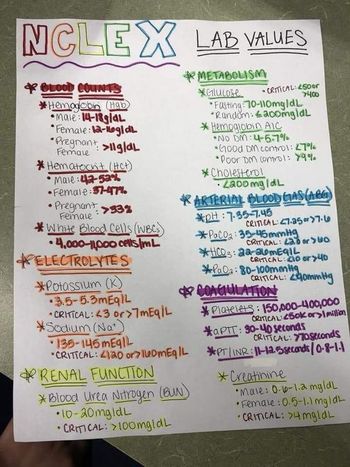 NCLEX LAB VALUES
* BLOOD COUNTS
* Hemoglobin (Hgb)
• Male: 14-18g/dL
• Female: 12-16g/dL
• Pregnant Female >11g/dL
* Hematocrit (Hct)
• Male: 42-52%
• Female: 37-47%
• Pregnant Female >33%
* White Blood Cells (WBCs)
• 4,000-11,000 cells/mL
* ELECTROLYTES
* Potassium (K)
• 3.5-5.3mEq/L
• CRITICAL: <3 or >7mEq/L
* Sodium (Na+)
• 135-145mEq/L
• CRITICAL: <120 or >160mEq/L
* RENAL FUNCTION
* Blood Urea Nitrogen (BUN)
• 10-20mg/dL
• CRITICAL: >100mg/dL
* METABOLISM
* Glucose • CRITICAL: <50 or >400
• Fasting: 70-110mg/dL
• Random: ≤200mg/dL
* Hemoglobin A1C
• No DM: 4-5.7%
• Good DM control: <7%
• Poor DM control: >9%
* Cholesterol
• <200mg/dL
* ARTERIAL BLOOD GAS (ABG)
* pH: 7.35-7.45
CRITICAL: <7.25 or >7.6
* PaCO2: 35-45mmHg
CRITICAL: <20 or >60
* HCO3: 22-26mEq/L
CRITICAL: <10 or >40
* PaO2: 80-100mmHg
CRITICAL: <40mmHg
* COAGULATION
* Platelets: 150,000-400,000
CRITICAL: <50k or >1 million
* aPTT: 30-40 seconds
CRITICAL: >70 seconds
* PT/INR: 11-12.5 seconds / 0.8-1.1
* Creatinine
• Male: 0.6-1.2 mg/dL
• Female: 0.5-1.1 mg/dL
• CRITICAL: >4mg/dL